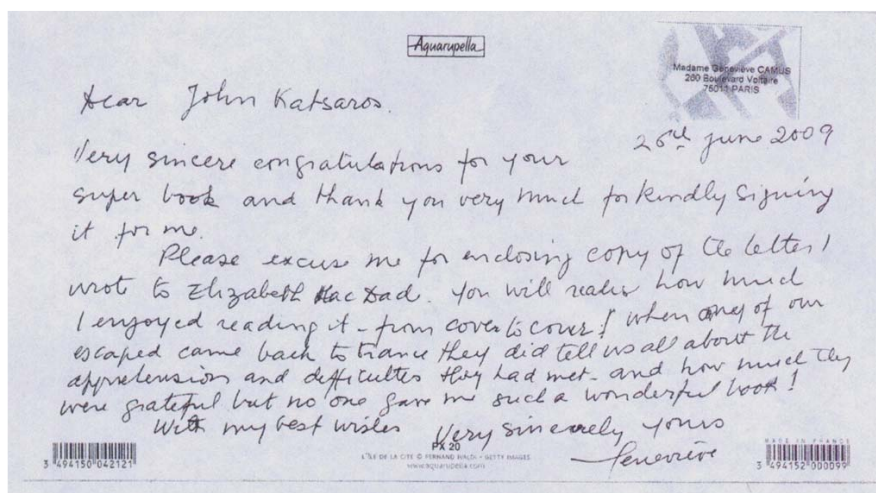 Aquarupella
Madame Geneviève CAMUS
260 Boulevard Voltaire
75011 PARIS
Dear John Katsaros.
26th June 2009
Very sincere congratulations for your
super book and thank you very much for kindly signing
it for me.
Please excuse me for enclosing copy of the letter I
wrote to Elizabeth Mac Dad. You will realise how much
I enjoyed reading it - from cover to cover! When any of our
escaped came back to France they did tell us all about the
apprehensions and difficultes they had met - and how much they
were grateful but no one gave me such a wonderful book!
With my best wishes Very sincerely yours
Geneviève
PX 20
L'ÎLE DE LA CITÉ © FERNAND IVALDI - GETTY IMAGES
www.aquarupella.com
3 494150 042121
MADE IN FRANCE
3 494152 000099